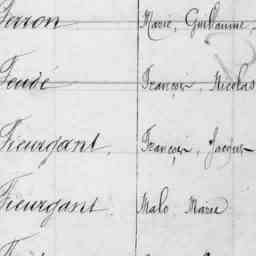 Perron Marie, Guillaume
Feudé François, Nicolas
Fieurgant. François, Jacques
Fieurgant. Malo Marie